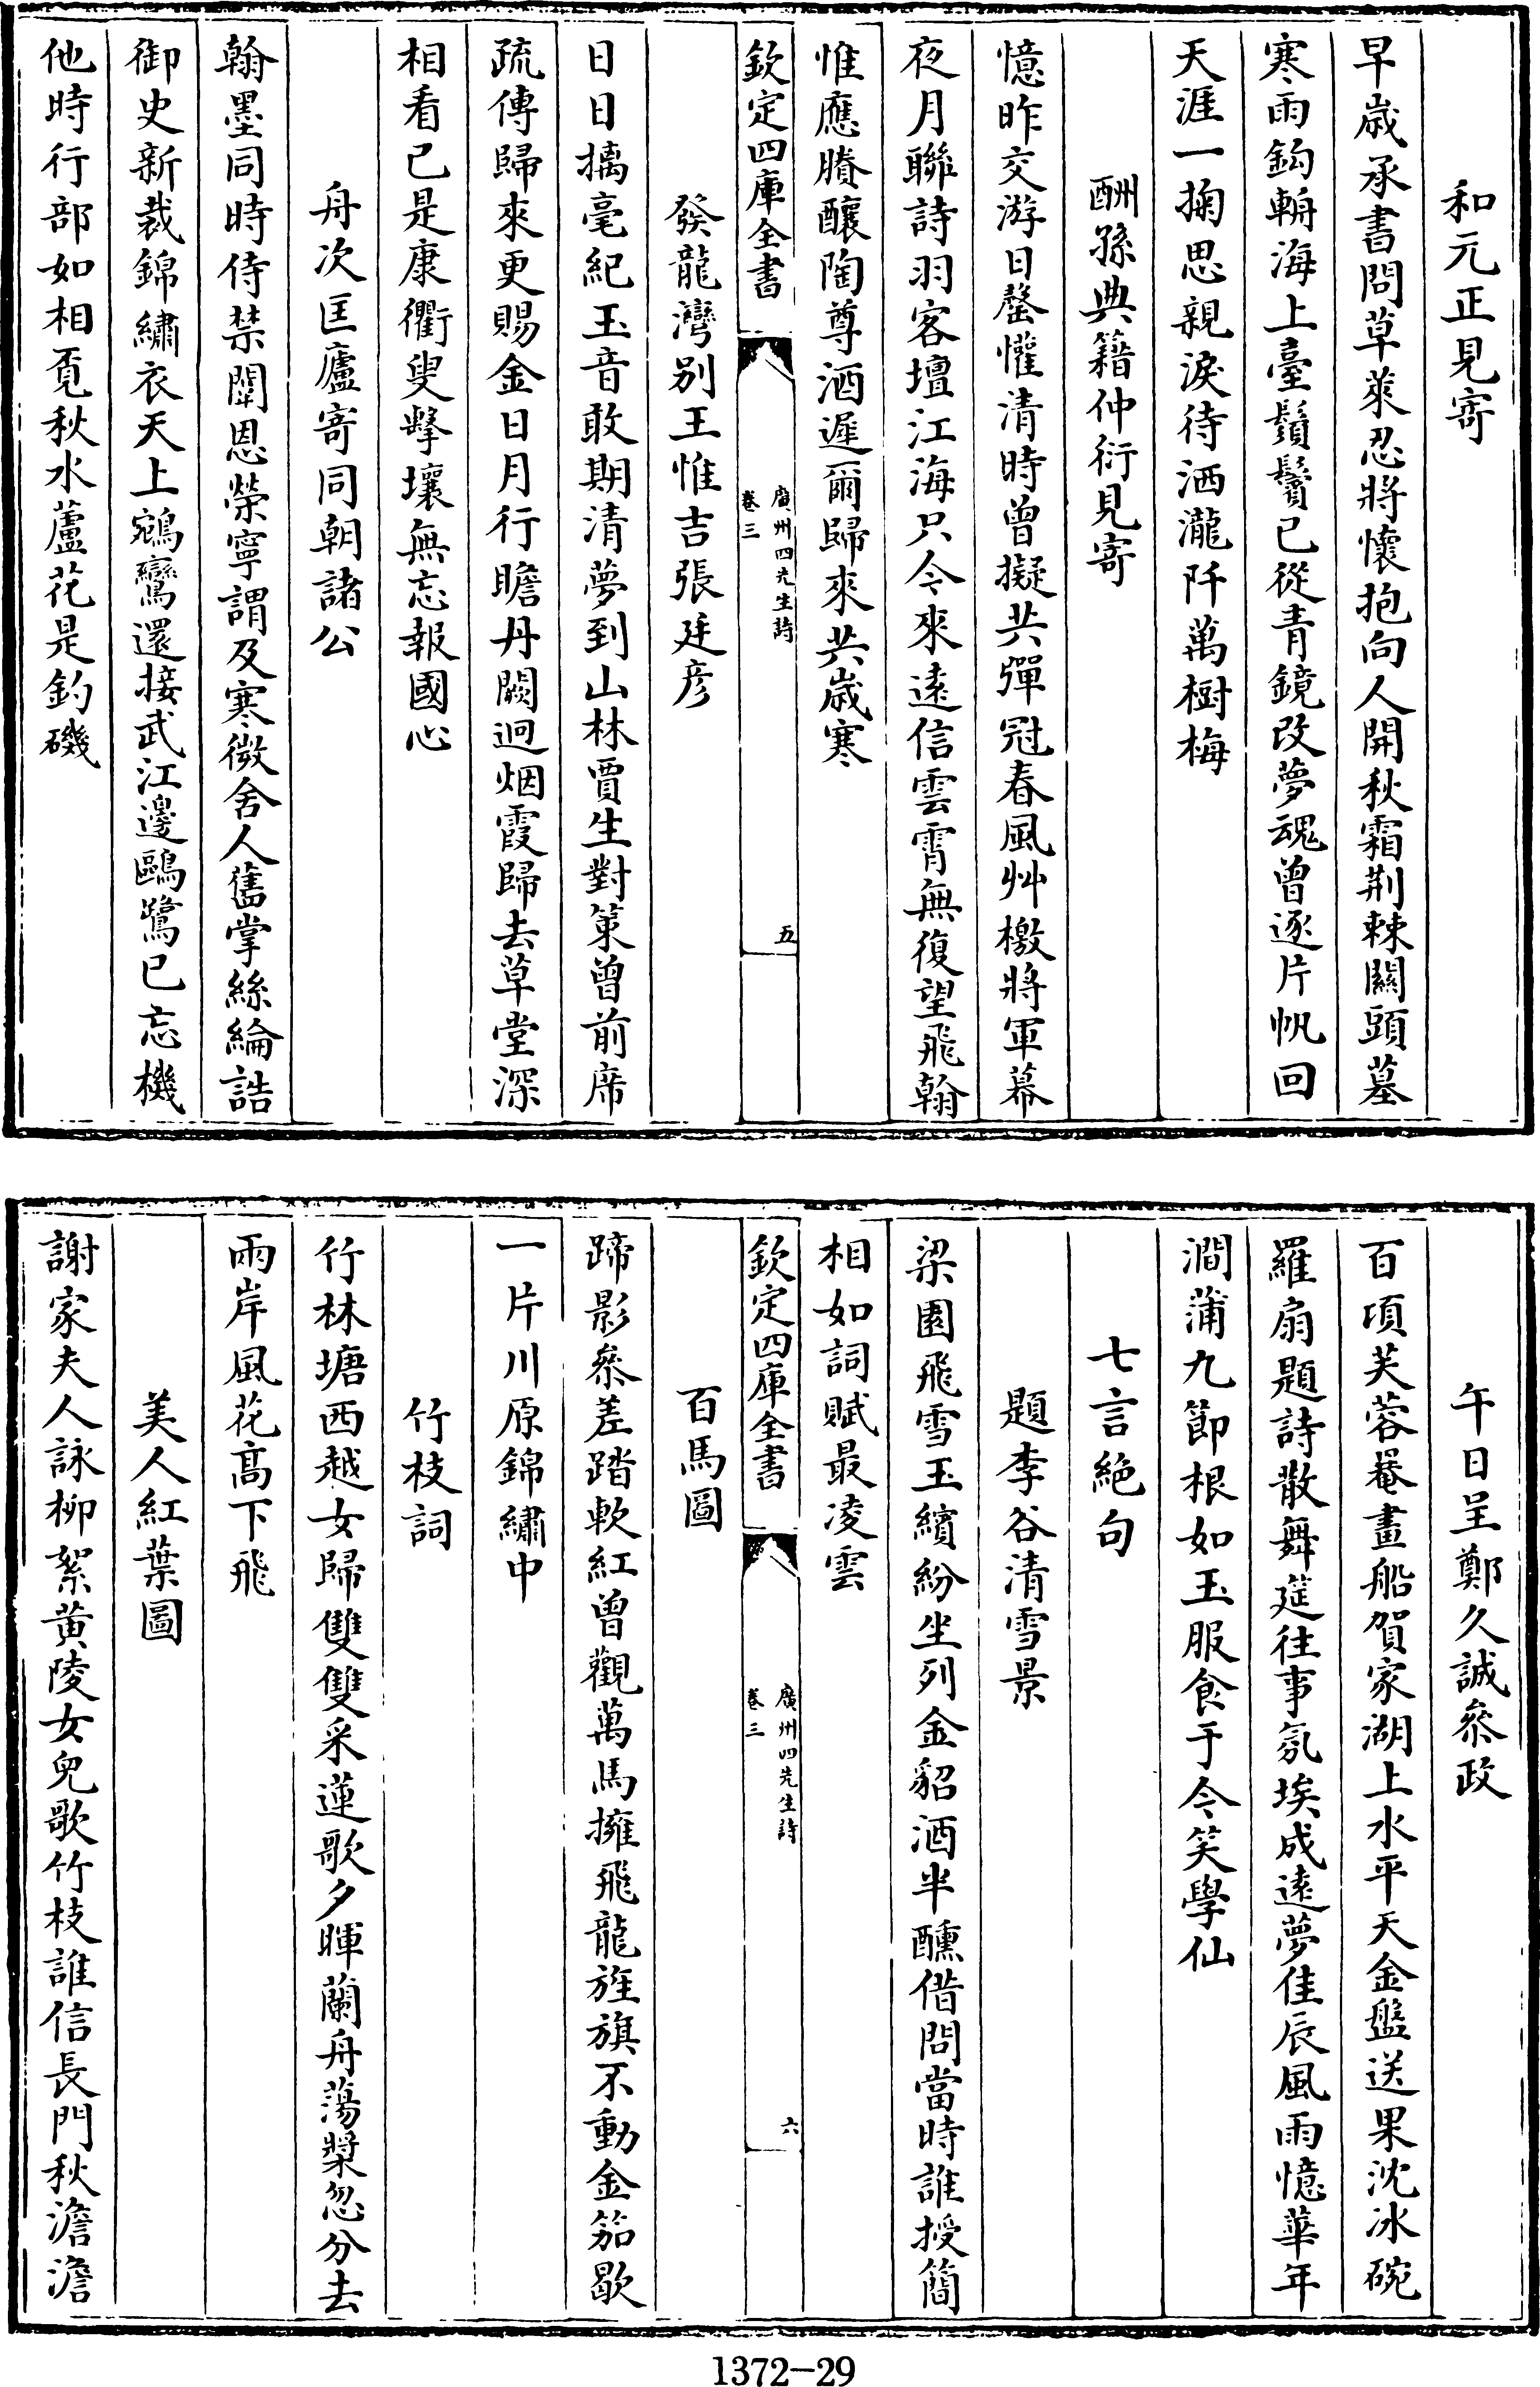 和元正見寄
早歳承書問草萊忍將懷抱向人開秋霜荆棘關頭墓
寒雨鈎輈海上臺鬚鬢已從青鏡改夢魂曾逐片帆回
天涯一掬思親淚待洒瀧阡萬樹梅
酬孫典籍仲衍見寄
憶昨交游日罄懽清時曾擬共彈冠春風艸檄將軍幕
夜月聯詩羽客壇江海只今來遠信雲霄無復望飛翰
惟應賸釀陶尊酒遲爾歸來共歳寒
欽定四庫全書
廣州四先生詩
卷三
五
發龍灣別王惟吉張廷彦
日日摛毫紀玉音敢期清夢到山林賈生對策曾前席
疏傅歸來更賜金日月行瞻丹闕迥烟霞歸去草堂深
相看已是康衢叟擊壤無忘報國心
舟次匡廬寄同朝諸公
翰墨同時侍禁闈恩榮寧謂及寒微舍人舊掌絲綸誥
御史新裁錦繡衣天上鵷鸞還接武江邊鷗鷺已忘機
他時行部如相覔秋水蘆花是釣磯
午日呈鄭久誠叅政
百頃芙蓉罨畫船賀家湖上水平天金盤送果沈冰碗
羅扇題詩散舞筵往事氛埃成遠夢佳辰風雨憶華年
澗蒲九節根如玉服食于今笑學仙
七言絶句
題李谷清雪景
梁園飛雪玉繽紛坐列金貂酒半醺借問當時誰授簡
相如詞賦最凌雲
欽定四庫全書
廣州四先生詩
卷三
六
百馬圖
蹄影叅差踏軟紅曾觀萬馬擁飛龍旌旗不動金笳歇
一片川原錦繡中
竹枝詞
竹林塘西越女歸雙雙采蓮歌夕暉蘭舟蕩槳忽分去
兩岸風花高下飛
美人紅葉圖
謝家夫人詠柳絮黄陵女兒歌竹枝誰信長門秋澹澹
1372-29